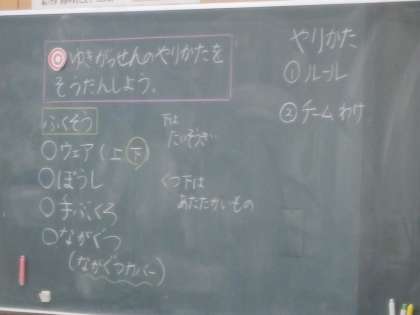 ゆきがっせんのやりかたを
そうだんしよう。
ふくそう
○ウェア(上下)
○ぼうし
○手ぶくろ
○ながぐつ
(ながぐつカバー)
下は
たいそうぎ
くつ下は
あたたかいもの
やりかた
①ルール
②チームわけ